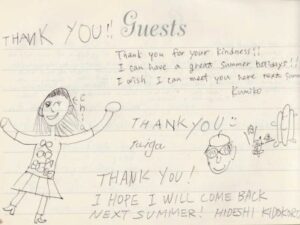 THANK YOU!!
Guests
Thank you for your kindness!!
I can have a great summer holiday!!!
I wish I can meet you here next summer
Kumiko
THANK YOU
taiga
THANK YOU!
I HOPE I WILL COME BACK
NEXT SUMMER! HIDESHI KIDOKORO